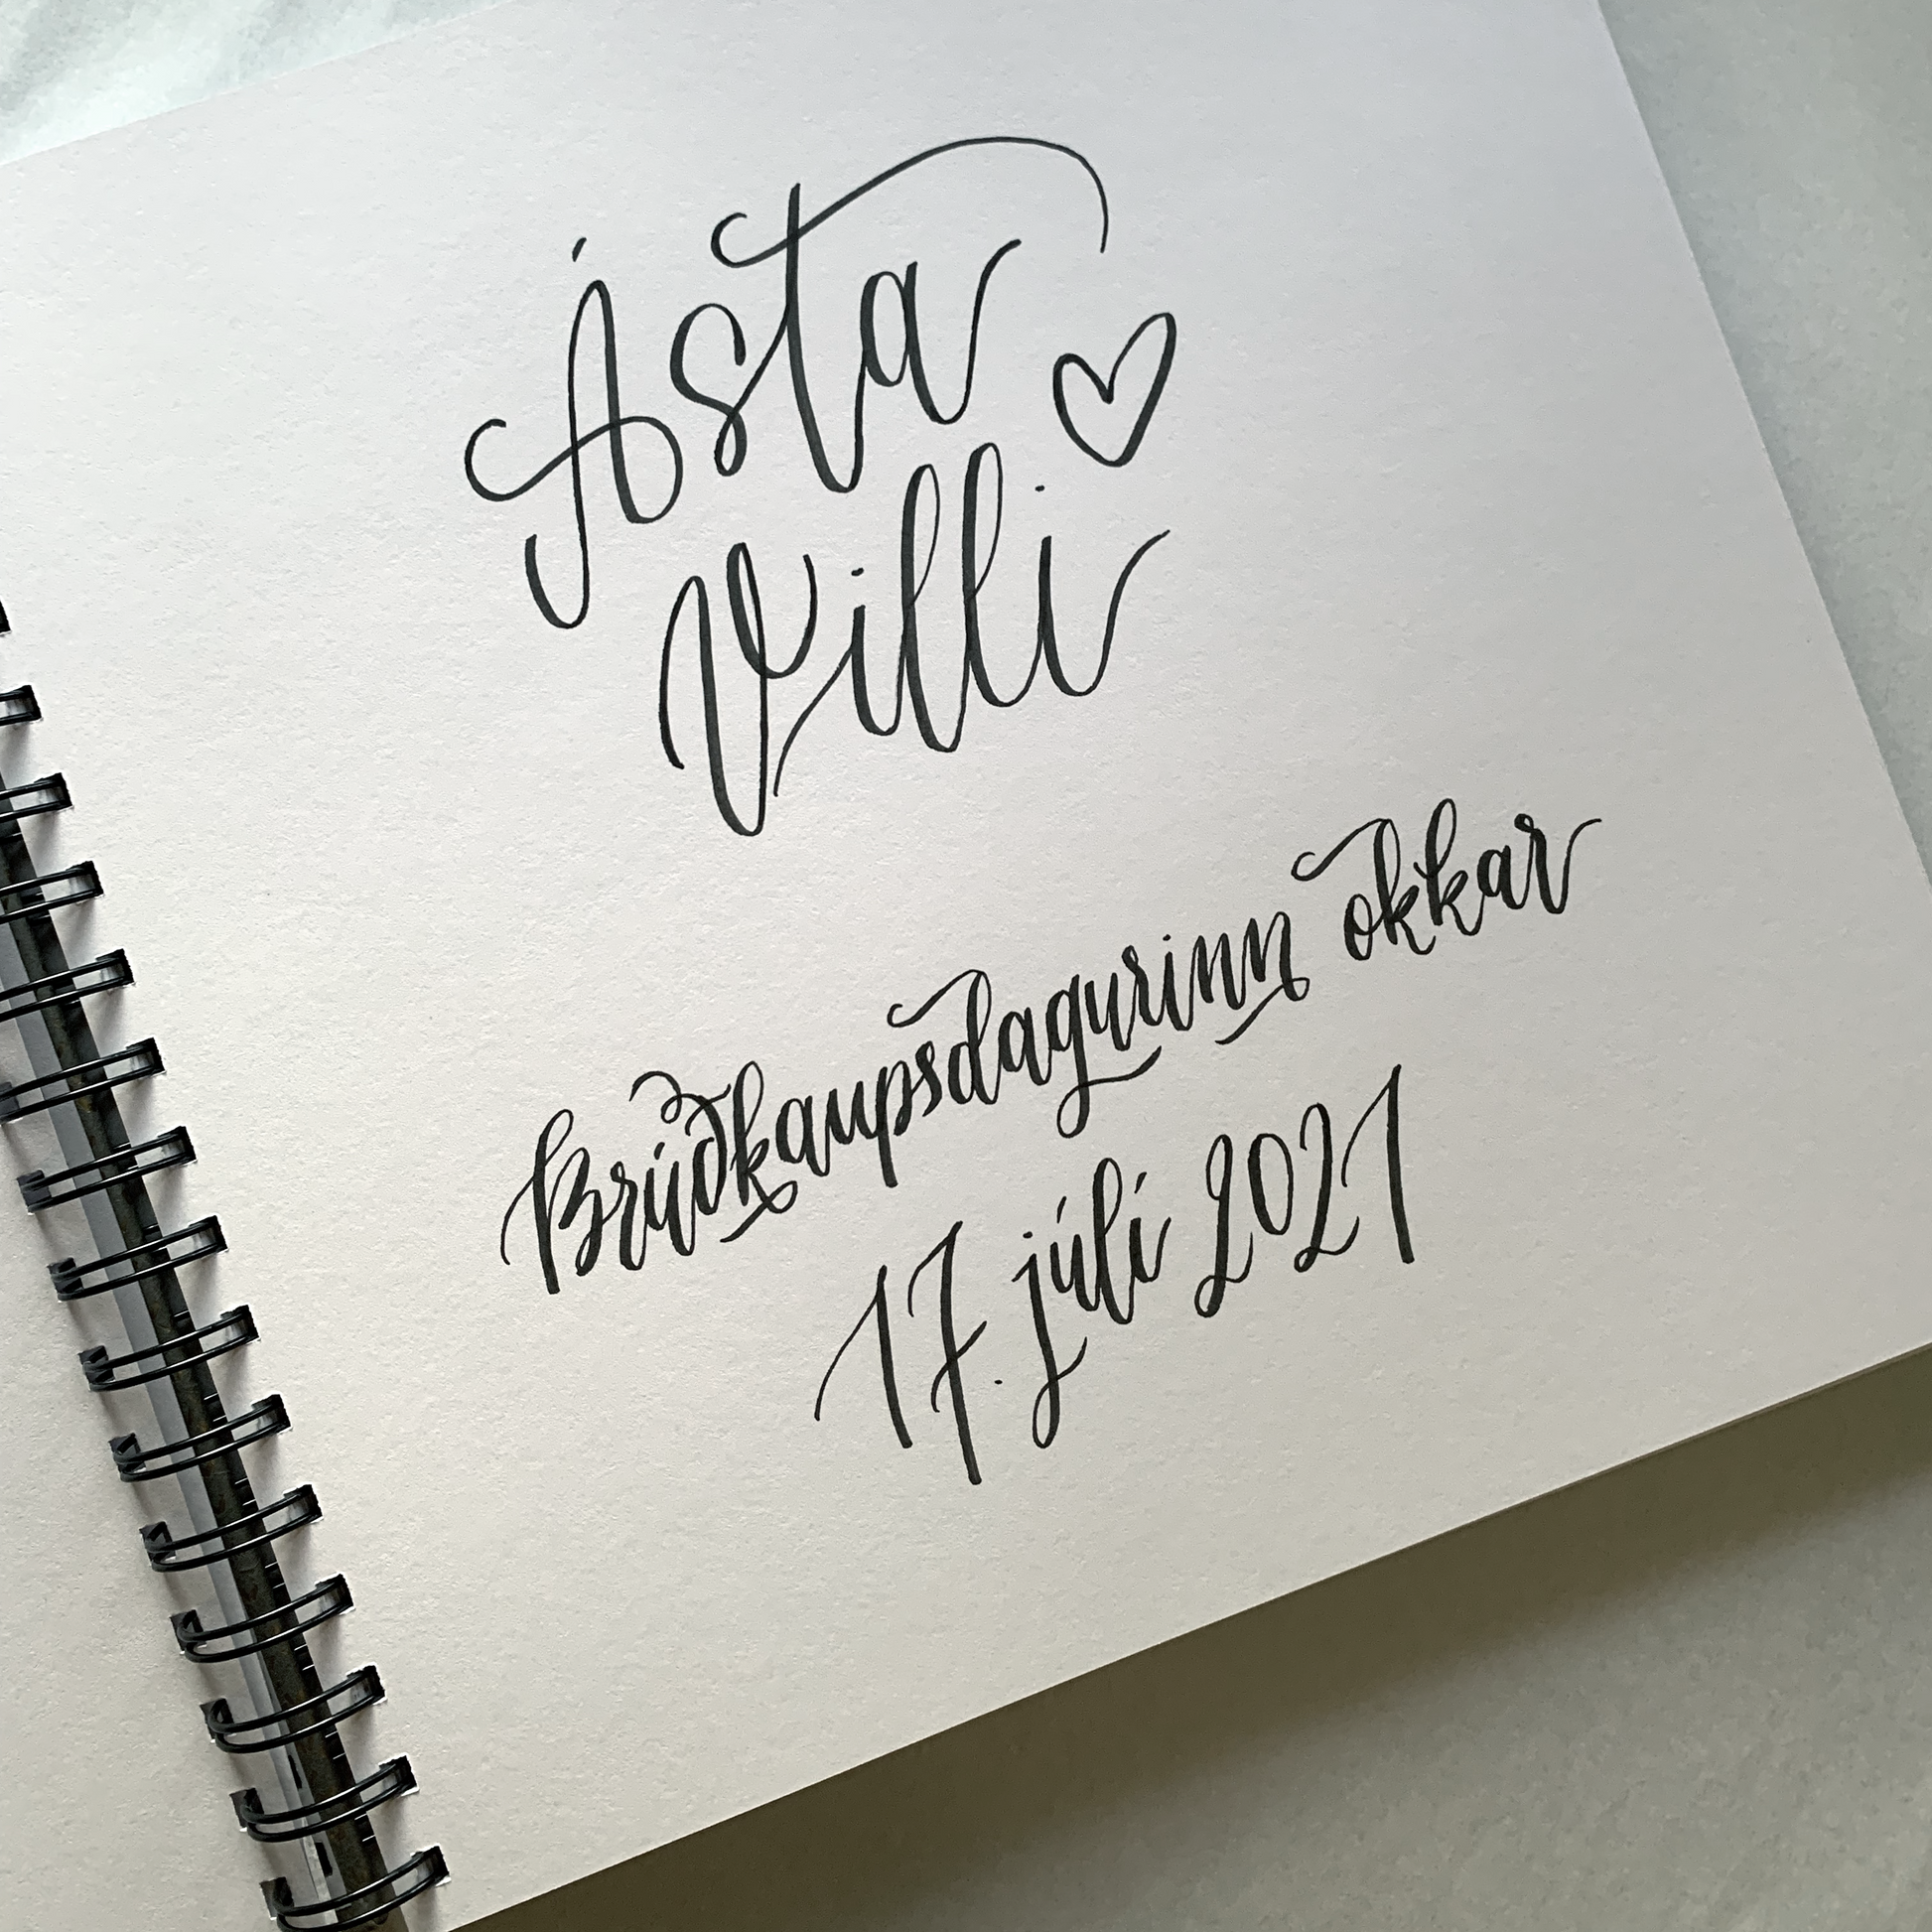 Ásta
Villi
Brúðkaupsdagurinn okkar
17. júlí 2021